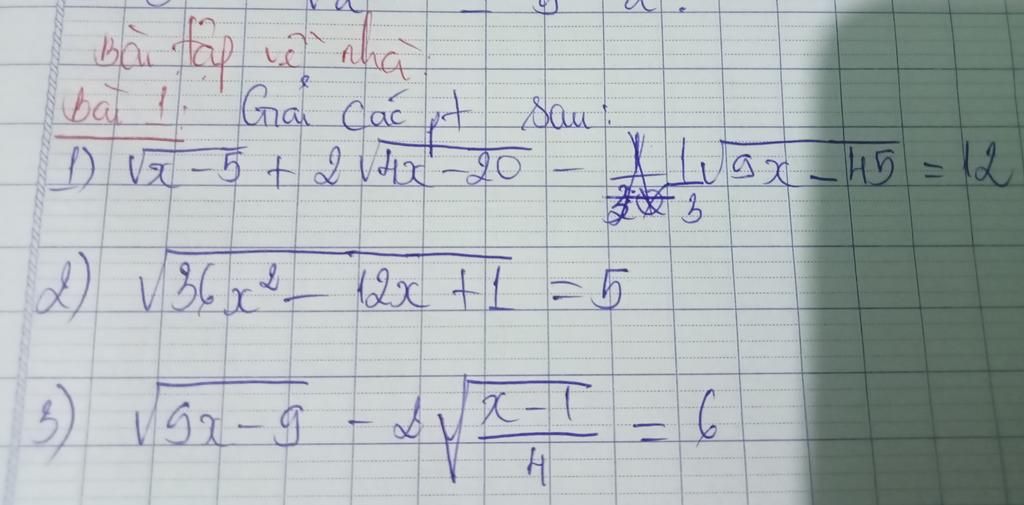 Bài tập về nhà
Bài 1: Giải các pt sau:
1) √(x-5) + 2√(4x-20) - 1/3 √(9x-45) = 12
2) √(36x² - 12x + 1) = 5
3) √(9x-9) - 2√((x-1)/4) = 6